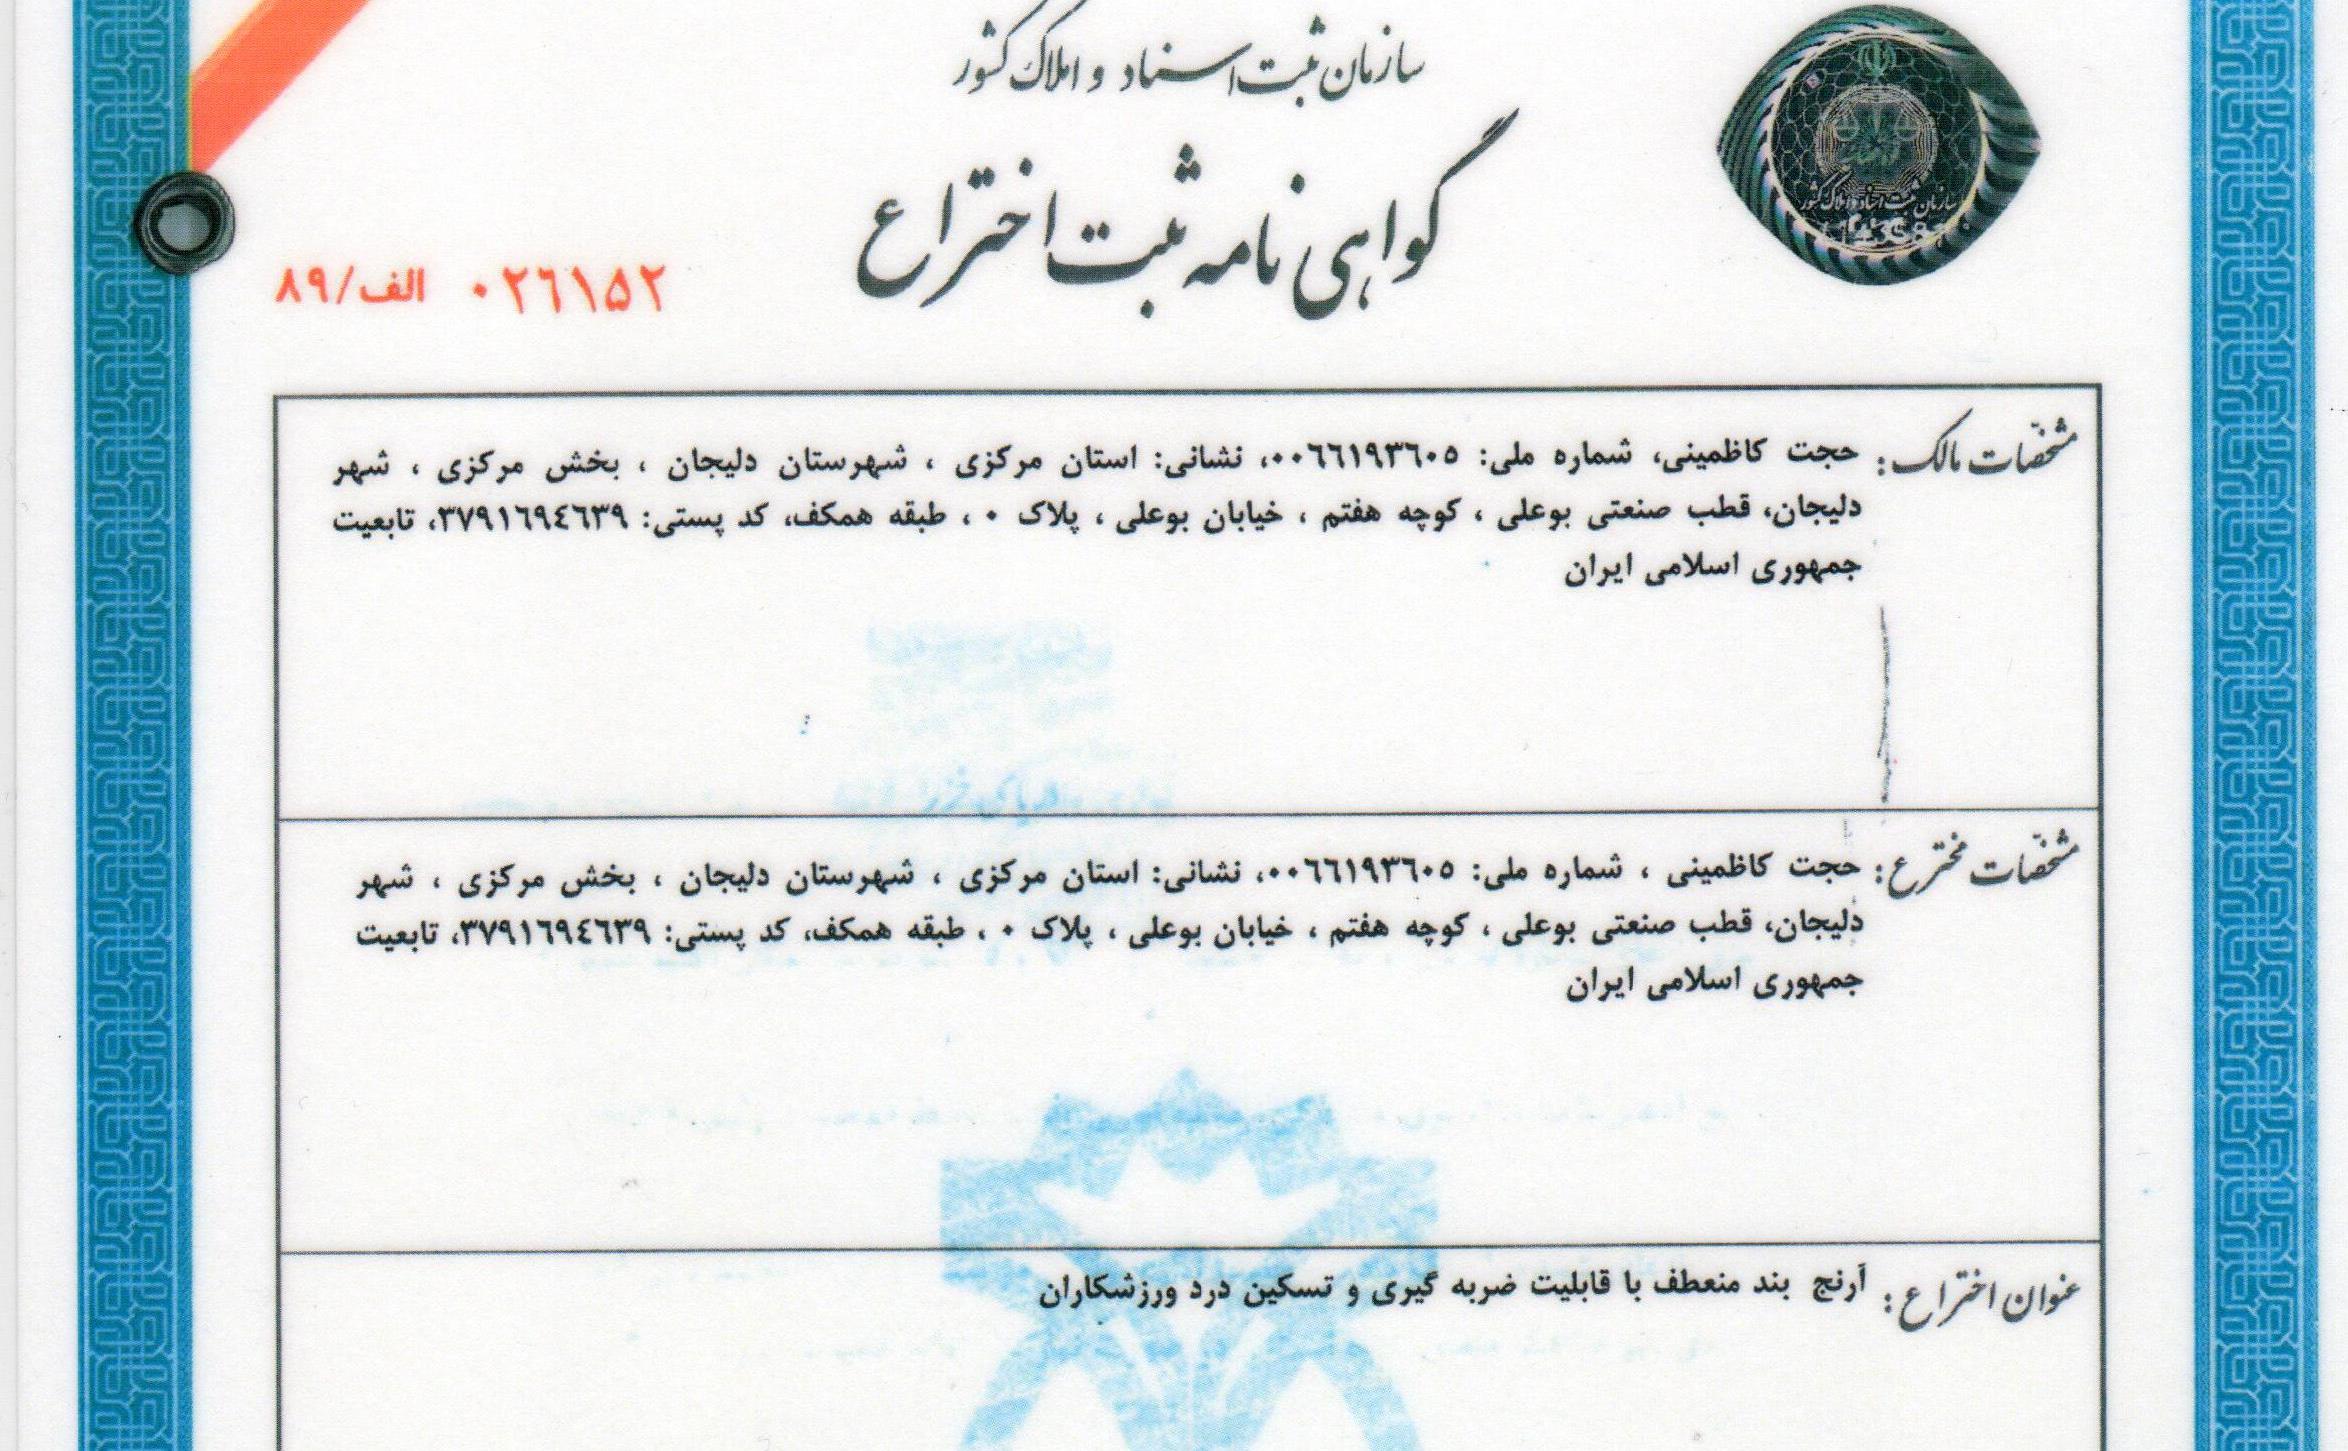 سازمان ثبت اسناد و املاک کشور
گواهی نامه ثبت اختراع
سازمان ثبت اسناد و املاک کشور
۰۲٦۱۵۲ الف/۸۹
مشخصات مالک: حجت کاظمینی، شماره ملی: ۰۰٦٦۱۹۳٦۰۵، نشانی: استان مرکزی ، شهرستان دلیجان ، بخش مرکزی ، شهر
دلیجان، قطب صنعتی بوعلی ، کوچه هفتم ، خیابان بوعلی ، پلاک ۰ ، طبقه همکف، کد پستی: ۳۷۹۱٦۹٤٦۳۹، تابعیت
جمهوری اسلامی ایران
مشخصات مخترع: حجت کاظمینی ، شماره ملی: ۰۰٦٦۱۹۳٦۰۵، نشانی: استان مرکزی ، شهرستان دلیجان ، بخش مرکزی ، شهر
دلیجان، قطب صنعتی بوعلی ، کوچه هفتم ، خیابان بوعلی ، پلاک ۰ ، طبقه همکف، کد پستی: ۳۷۹۱٦۹٤٦۳۹، تابعیت
جمهوری اسلامی ایران
عنوان اختراع: آرنج بند منعطف با قابلیت ضربه گیری و تسکین درد ورزشکاران